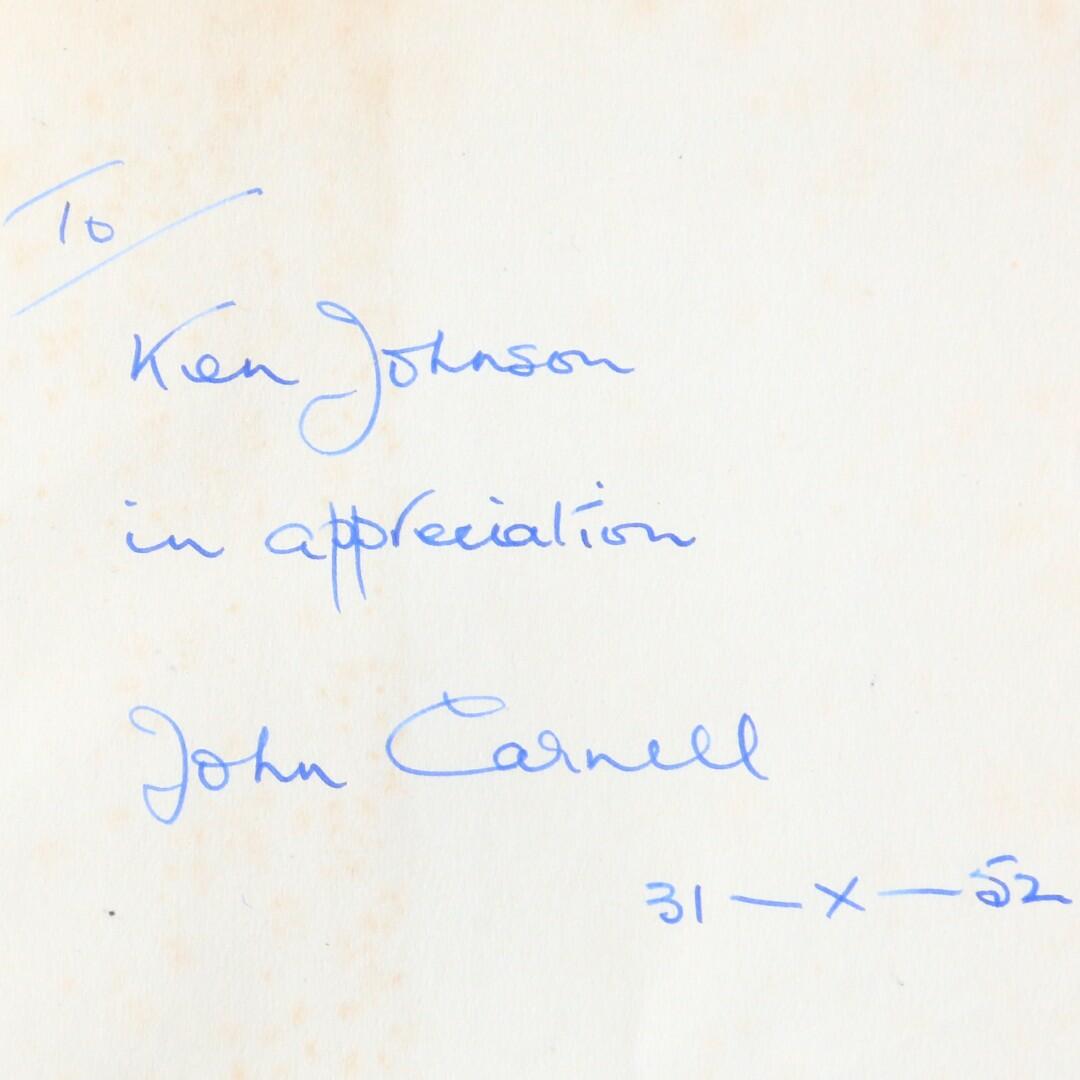 To
Ken Johnson
in appreciation
John Carnell
31 — X — 52